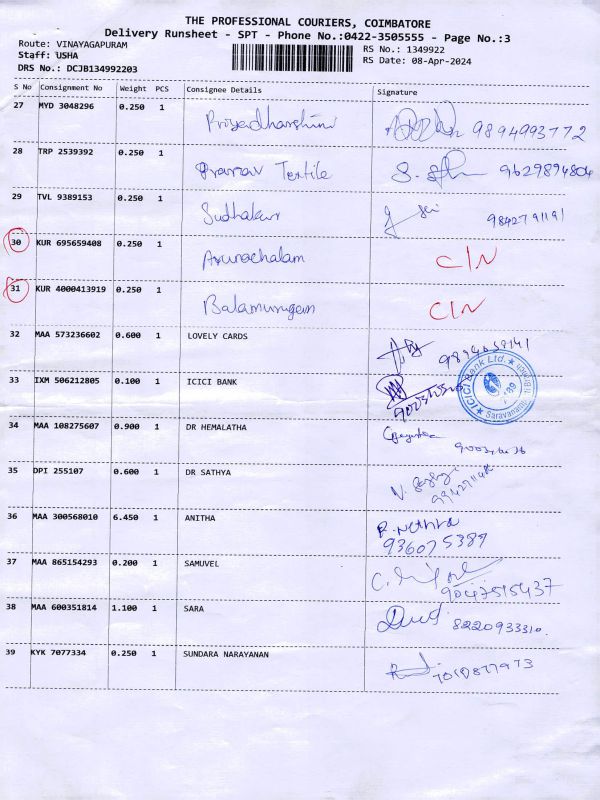 THE PROFESSIONAL COURIERS, COIMBATORE
Delivery Runsheet - SPT - Phone No.:0422-3505555 - Page No.:3
Route: VINAYAGAPURAM RS No.: 1349922
Staff: USHA RS Date: 08-Apr-2024
DRS No.: DCJB134992203
S No Consignment No Weight PCS Consignee Details Signature
27 MYD 3048296 0.250 1 Priyadharshini 9894993772
28 TRP 2539392 0.250 1 Pranav Textile 9629894804
29 TVL 9389153 0.250 1 Sudhakar 9842791191
30 KUR 695659408 0.250 1 Arunachalam C/N
31 KUR 4000413919 0.250 1 Balamurugan C/N
32 MAA 573236602 0.600 1 LOVELY CARDS 9894039141
33 IXM 506212805 0.100 1 ICICI BANK
ICICI Bank Ltd.
34 MAA 108275607 0.900 1 DR HEMALATHA
35 DPI 255107 0.600 1 DR SATHYA
36 MAA 300568010 6.450 1 ANITHA R. Nethra
936075389
37 MAA 865154293 0.200 1 SAMUVEL
9047515437
38 MAA 600351814 1.100 1 SARA 8220933310
39 KYK 7077334 0.250 1 SUNDARA NARAYANAN 7010877973